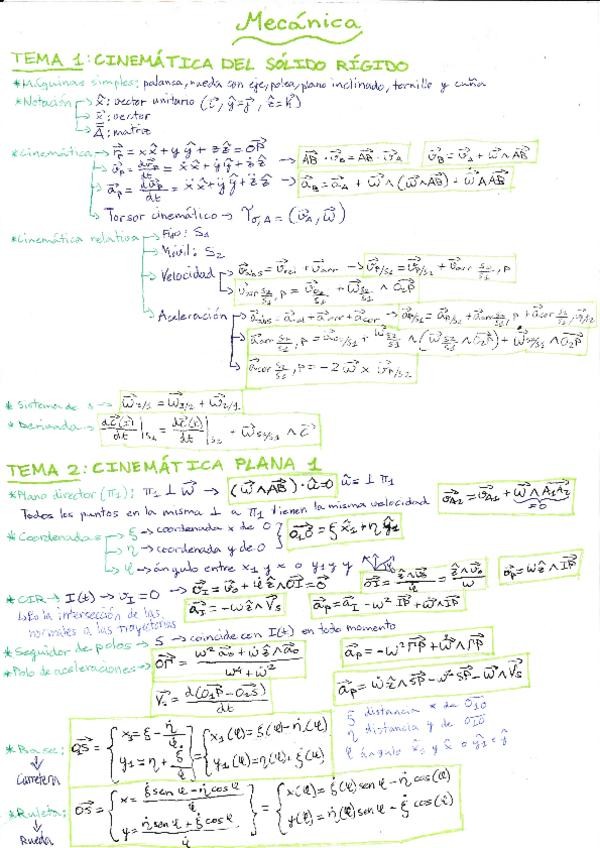 Mecánica
TEMA 1: CINEMÁTICA DEL SÓLIDO RÍGIDO
*Máquinas simples: palanca, rueda con eje, polea, plano inclinado, tornillo y cuña
*Notación → x̂: vector unitario (î, ŷ=ĵ, ẑ=k̂)
→ x⃗: vector
→ A̿: matriz
*Cinemática → r⃗p = x x̂ + y ŷ + z ẑ = OP⃗ → AB⃗ · v⃗B = AB⃗ · v⃗A v⃗B = v⃗A + ω⃗ ∧ AB⃗
→ v⃗p = dr⃗p/dt = ẋ x̂ + ẏ ŷ + ż ẑ
→ a⃗p = dv⃗p/dt = ẍ x̂ + ÿ ŷ + z̈ ẑ → a⃗B = a⃗A + ω⃗ ∧ (ω⃗ ∧ AB⃗) + ω̇⃗ ∧ AB⃗
→ Torsor cinemático → = (v⃗A, ω⃗)
*Cinemática relativa → Fijo: S1
→ Móvil: S2
→ Velocidad → v⃗abs = v⃗rel + v⃗arr → v⃗P/S1 = v⃗P/S2 + v⃗arr S2/S1, P
→ v⃗arr S2/S1, P = + ω⃗S2/S1 ∧ O2P⃗
→ Aceleración → a⃗abs = a⃗rel + a⃗arr + a⃗cor → a⃗P/S1 = a⃗P/S2 + a⃗arr S2/S1, P + a⃗cor
→ a⃗arr S2/S1, P = + ω⃗S2/S1 ∧ (ω⃗S2/S1 ∧ O2P⃗) + ω̇⃗S2/S1 ∧ O2P⃗
→ a⃗cor S2/S1, P = -2 ω⃗ × v⃗P/S2
* Sistema de s → ω⃗3/1 = ω⃗3/2 + ω⃗2/1
* Derivada → dc⃗(t)/dt |S1 = dc⃗(t)/dt |S2 + ω⃗S2/S1 ∧ c⃗
TEMA 2: CINEMÁTICA PLANA 1
*Plano director (π1): π1 ⊥ ω⃗ → (ω⃗ ∧ AB⃗) · û = 0 û = ⊥ π1
Todos los puntos en la misma ⊥ a π1 tienen la misma velocidad v⃗A2 = v⃗A1 + ω⃗ ∧ A1A2⃗ =0
*Coordenadas → ξ → coordenada x de O } O1O⃗ = ξ x̂1 + η ŷ1
→ η → coordenada y de O
→ φ → ángulo entre x1 y x o y1 y y
*CIR → I(t) → vI = 0 → v⃗I = v⃗o + φ̇ ẑ ∧ OI⃗ = 0⃗ OI⃗ = ẑ ∧ v⃗o/φ̇ = ẑ ∧ v⃗o/ω v⃗p = ω ẑ ∧ IP⃗
↳ Es la intersección de las normales a las trayectorias a⃗I = -ω ẑ ∧ V⃗s a⃗p = a⃗I - ω² IP⃗ + ω̇⃗ ∧ IP⃗
*Seguidor de polos → S → coincide con I(t) en todo momento
*Polo de aceleraciones → OΓ⃗ = ω² a⃗o + ω̇ ẑ ∧ a⃗o / ω⁴ + ω̇² a⃗p = -ω² ΓP⃗ + ω̇⃗ ∧ ΓP⃗
V⃗s = d(O1P⃗ - O1S⃗)/dt a⃗p = ω̇ ẑ ∧ SP⃗ - ω² SP⃗ - ω⃗ ∧ V⃗s
ξ distancia x de O1O⃗
η distancia y de O1O⃗
φ ángulo x1 y x o ŷ1 = ŷ
*Base: O1S⃗ = { x1 = ξ - η̇/φ̇ = { x1(φ) = ξ(φ) - η̇(φ)
↓ y1 = η + ξ̇/φ̇ y1(φ) = η(φ) + ξ̇(φ)
Carretera
*Ruleta: OS⃗ = { x = ξ̇ sen φ - η̇ cos φ / φ̇ = { x(φ) = ξ̇(φ) sen φ - η̇ cos(φ)
↓ y = η̇ sen φ + ξ̇ cos φ / φ̇ y(φ) = η̇(φ) sen φ - ξ̇ cos(φ)
Rueda